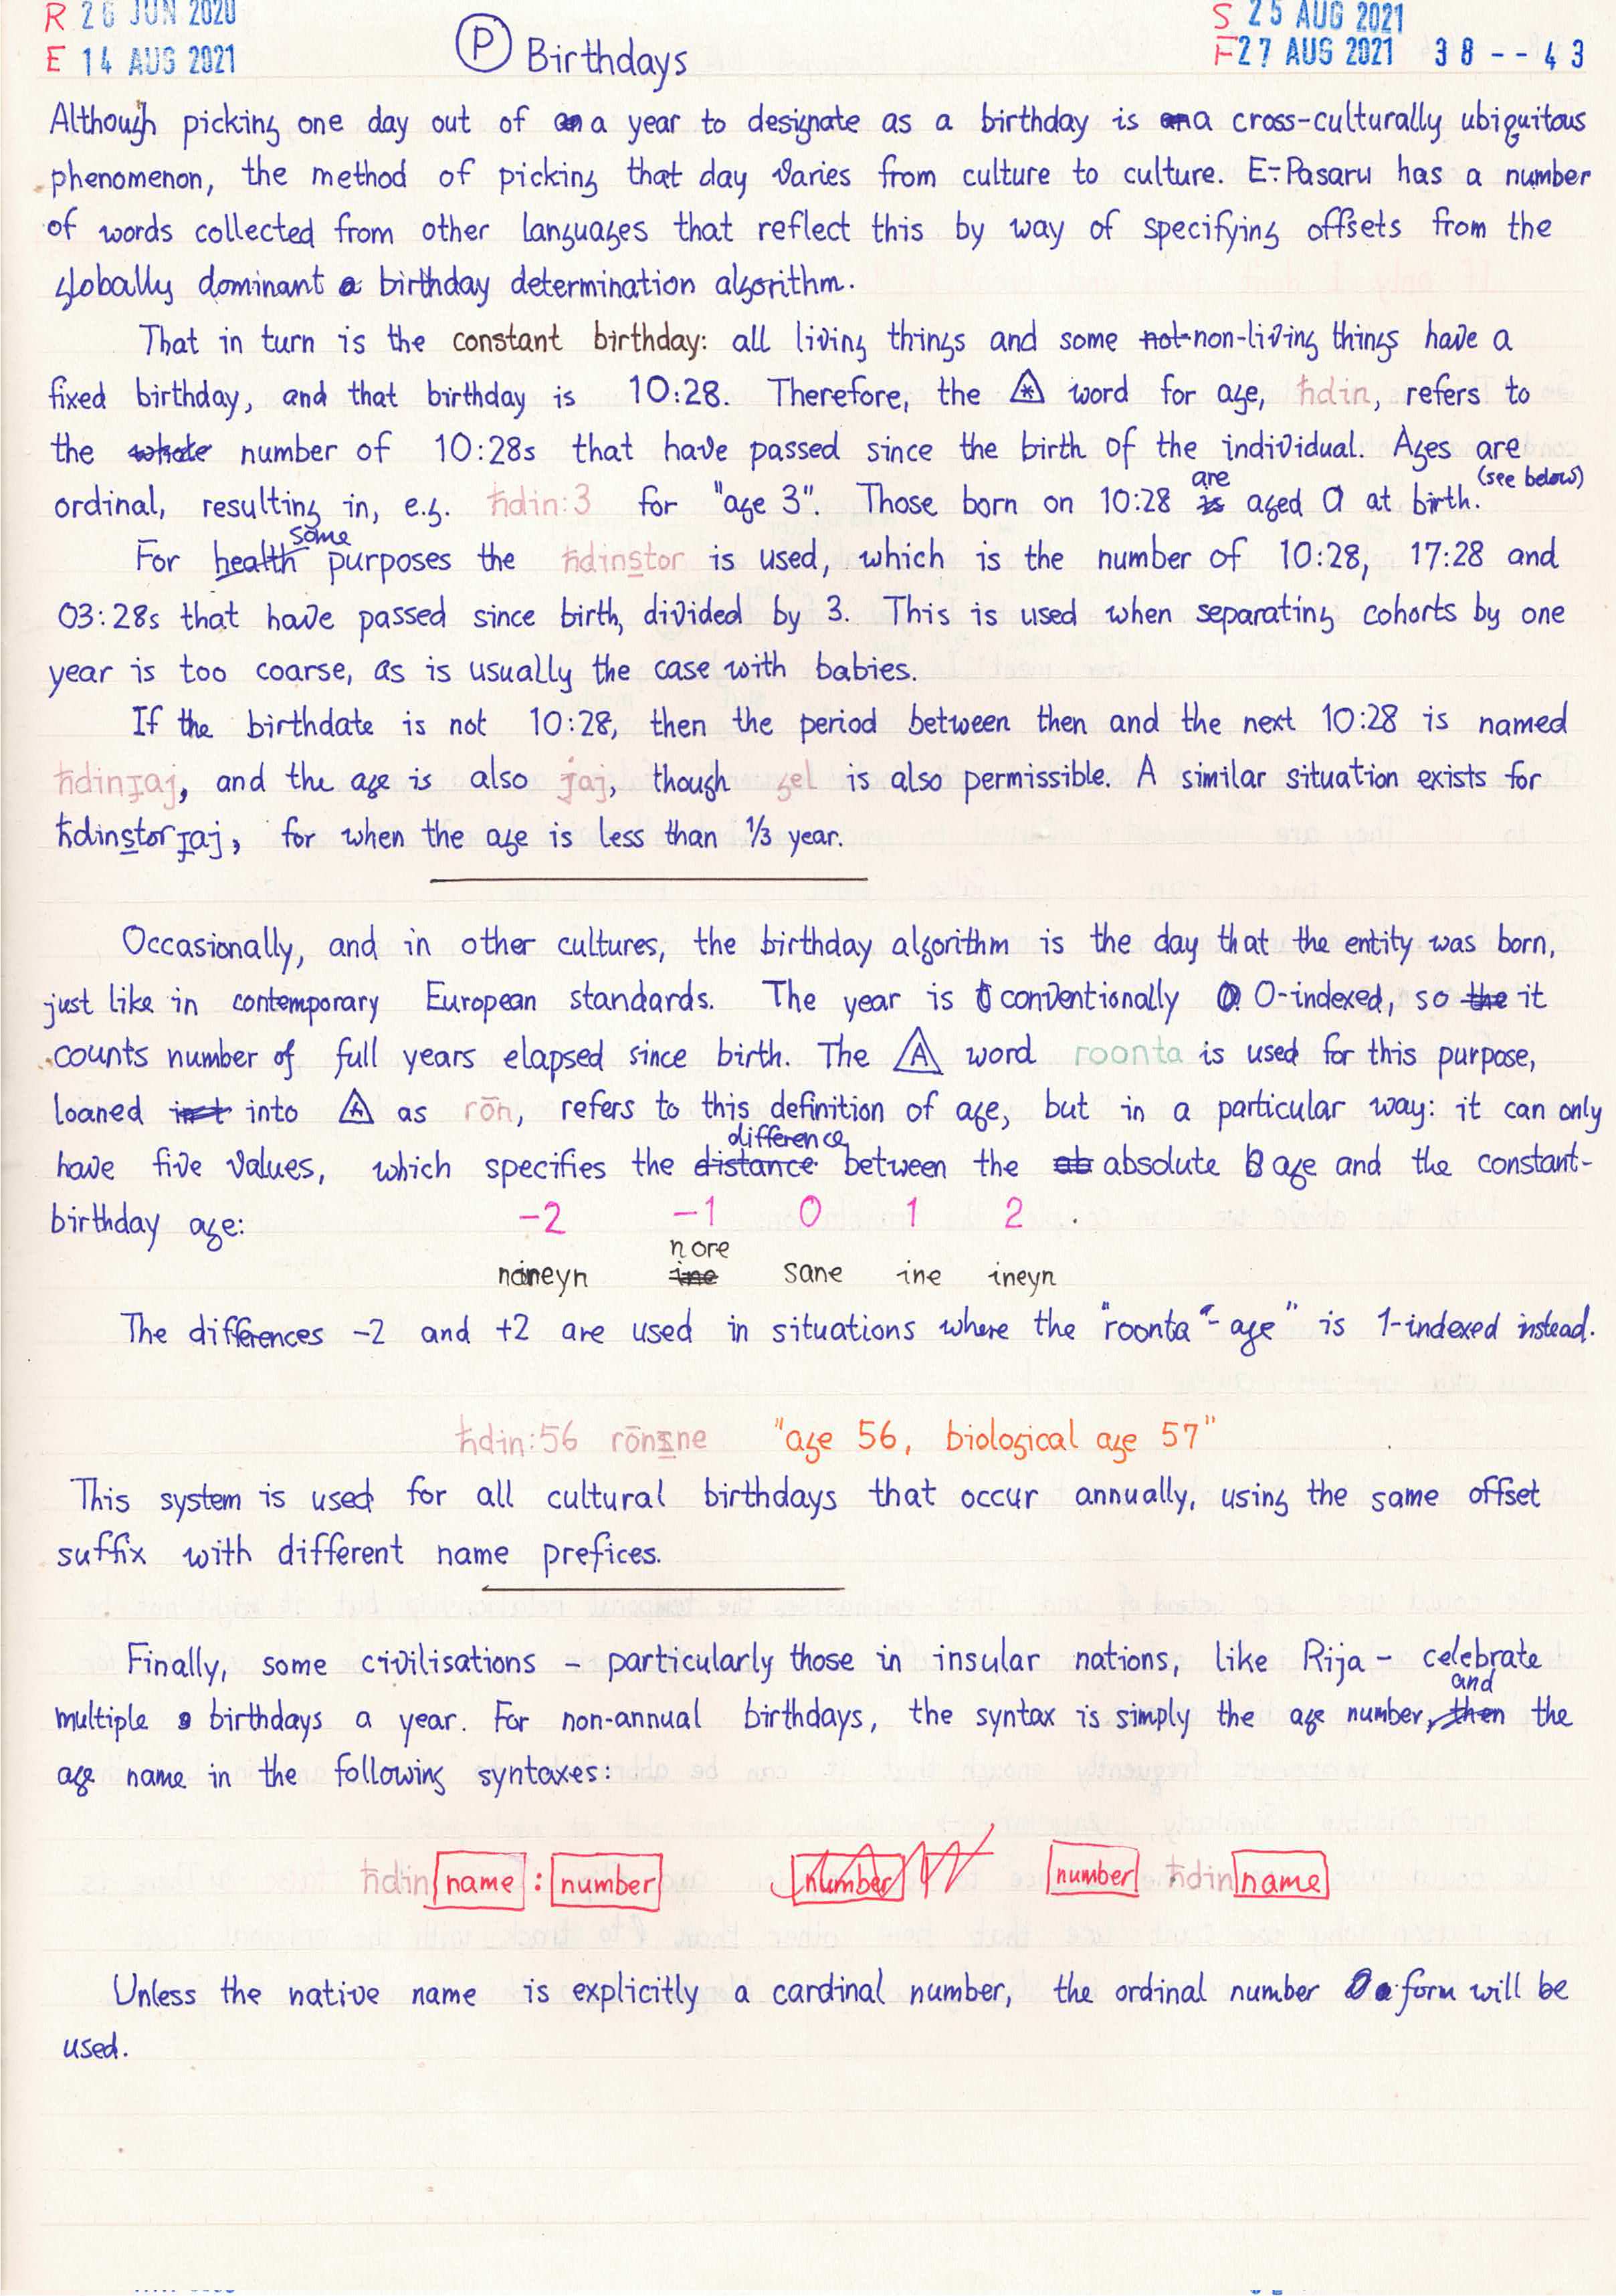 R 26 JUN 2020
E 14 AUG 2021
P Birthdays
S 25 AUG 2021
F 27 AUG 2021 38--43
Although picking one day out of an a year to designate as a birthday is an a cross-culturally ubiquitous
phenomenon, the method of picking that day varies from culture to culture. E-Pasaru has a number
of words collected from other languages that reflect this by way of specifying offsets from the
globally dominant a birthday determination algorithm.
That in turn is the constant birthday: all living things and some not-non-living things have a
fixed birthday, and that birthday is 10:28. Therefore, the word for age, ħdin, refers to
the whole number of 10:28s that have passed since the birth of the individual. Ages are
ordinal, resulting in, e.g. ħdin:3 for "age 3". Those born on 10:28 is are aged 0 at birth. (see below)
For health some purposes the ħdinstor is used, which is the number of 10:28, 17:28 and
03:28s that have passed since birth, divided by 3. This is used when separating cohorts by one
year is too coarse, as is usually the case with babies.
If the birthdate is not 10:28, then the period between then and the next 10:28 is named
ħdinjaj, and the age is also jaj, though gel is also permissible. A similar situation exists for
ħdinstorjaj, for when the age is less than 1/3 year.
Occasionally, and in other cultures, the birthday algorithm is the day that the entity was born,
just like in contemporary European standards. The year is conventionally 0-indexed, so the it
counts number of full years elapsed since birth. The A word roonta is used for this purpose,
loaned into as rōn, refers to this definition of age, but in a particular way: it can only
have five values, which specifies the distance difference between the ab absolute age and the constant-
birthday age: -2 -1 0 1 2 .
naneyn ine nore sane ine ineyn
The differences -2 and +2 are used in situations where the "roonta - age" is 1-indexed instead.
ħdin:56 rōnsne "age 56, biological age 57"
This system is used for all cultural birthdays that occur annually, using the same offset
suffix with different name prefices.
Finally, some civilisations – particularly those in insular nations, like Rija – celebrate
multiple birthdays a year. For non-annual birthdays, the syntax is simply the age number, then and the
age name in the following syntaxes:
ħdin name : number number number ħdin name
Unless the native name is explicitly a cardinal number, the ordinal number form will be
used.